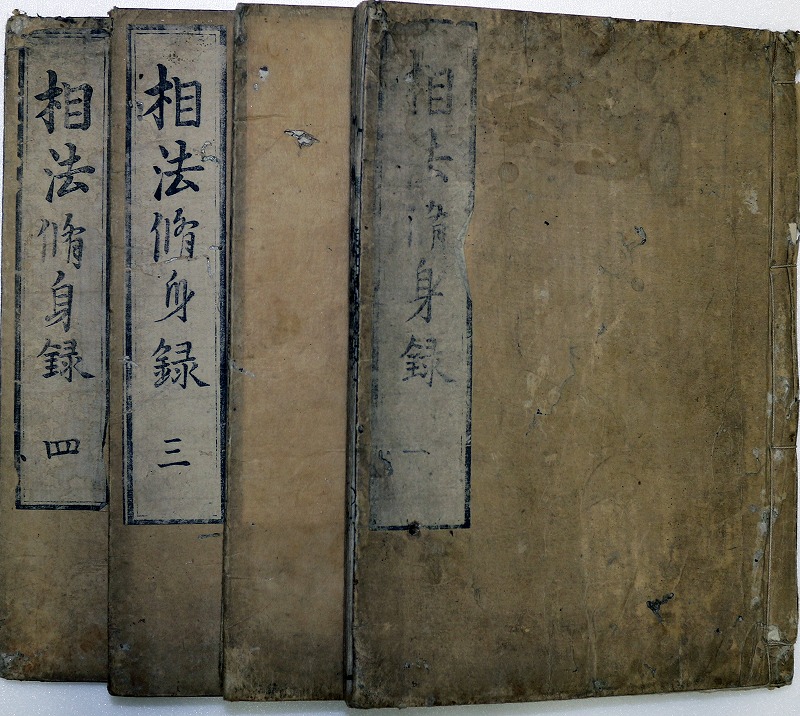 相法脩身録 一
相法脩身録 三
相法脩身録 四